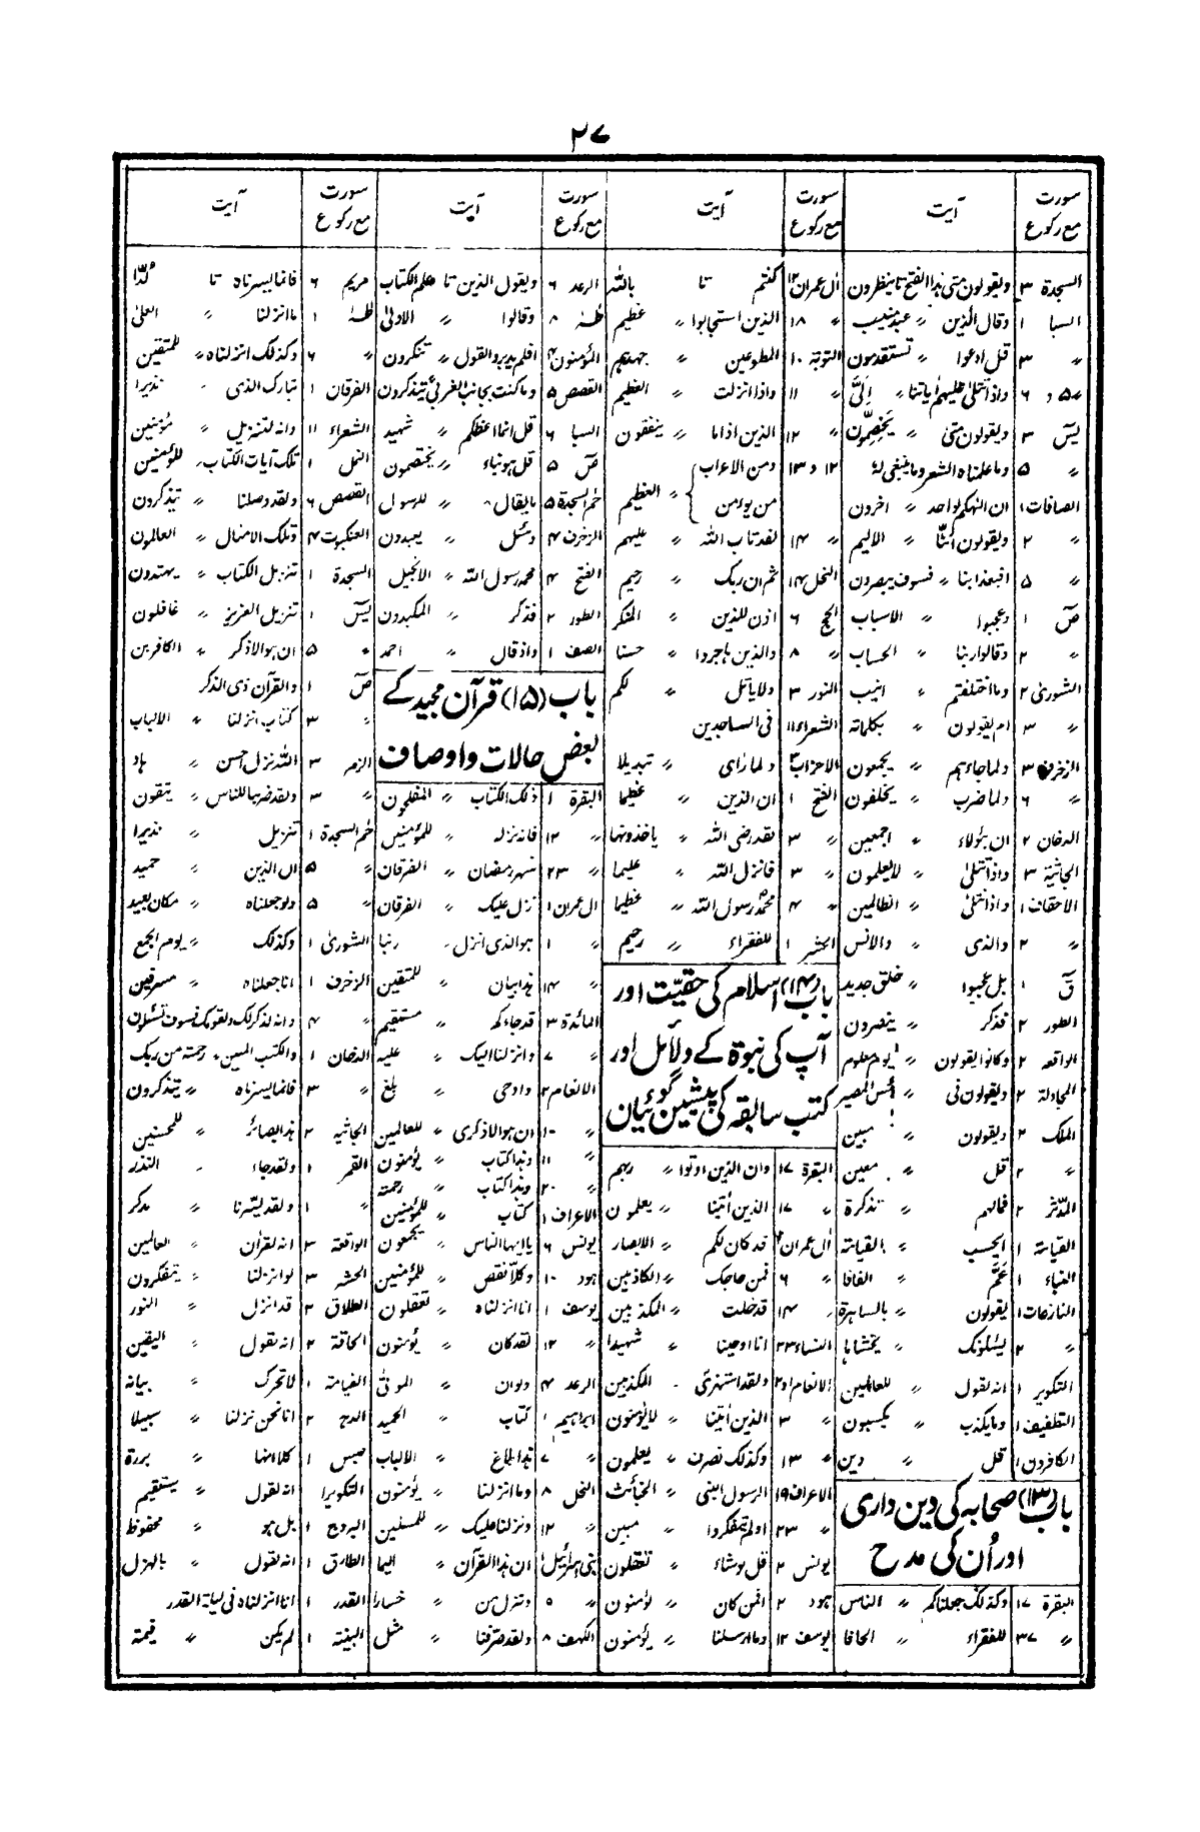 ٢٧
سورت مع رکوع | آیت
السجدة ٣ ویقولون متی ہذا الفتح تا ینظرون
السبا ١ وقال الذین 〃 عبد منیب
〃 ٣ قل ادعوا 〃 تستقدمون
〃 ٥ و ٦ واذا تتلیٰ علیہم اٰیاتنا 〃
یٰسٓ ٣ ویقولون متیٰ 〃 یخصّمون
〃 ٥ وما علمناہ الشعر وما ینبغی لہ
الصافات ١ ان الٰہکم لواحد 〃 اخرون
〃 ٢ ویقولون ائنّا 〃 الالیم
〃 ٥ افبعذابنا 〃 فسوف یبصرون
صٓ ١ وعجبوا 〃 الاسباب
〃 ٢ وقالوا ربنا 〃 الحساب
الشوریٰ ٢ وما اختلفتم 〃 انیب
〃 ٣ ام یقولون 〃 بکلماتہ
الزخرف ٣ ولما جاءہم 〃 یجمعون
〃 ٦ ولما ضرب 〃 یخلفون
الدخان ٢ ان ہٰؤلاء 〃 اجمعین
الجاثیة ٣ واذا تتلیٰ 〃 لا یعلمون
الاحقاف ١ واذا تتلیٰ 〃 الظالمین
〃 ٢ والذی 〃 والانس
قٓ ١ بل عجبوا 〃 خلق جدید
الطور ٢ فذکر 〃 ینصرون
الواقعہ ٢ وکانوا یقولون 〃 یوم معلوم
المجادلة ٢ ویقولون فی 〃 فبئس المصیر
الملک ٢ ویقولون 〃 مبین
〃 ٢ قل 〃 معین
المدّثر ٢ فمالہم 〃 تذکرة
القیامة ١ ایحسب 〃 القیامة
النباء ١ عمّ 〃 الفافا
النازعات ١ یقولون 〃 بالساہرة
〃 ٢ یسئلونک 〃 یخشاہا
التکویر ١ انہ لقول 〃 للعالمین
التطفیف ١ وما یکذب 〃 یکسبون
الکافرون ١ قل 〃 دین
باب (١٣) صحابہ کی دین داری
اور اُن کی مدح
البقرة ١٧ وکذلک جعلناکم 〃 الناس
〃 ٣٧ للفقراء 〃 الحافا
سورت مع رکوع | آیت
اٰل عمران ١٢ کنتم تا باللہ
〃 ١٨ الذین استجابوا 〃 عظیم
التوبة ١٠ المطوعین 〃 جہدہم
〃 ١١ واذا انزلت 〃 العظیم
〃 ١٢ الذین اذا ما 〃 ینفقون
١٢ و ١٣ ومن الاعراب من یؤمن 〃 العظیم
〃 ١٤ لقد تاب اللہ 〃 علیہم
النحل ١٤ ثم ان ربک 〃 رحیم
الحج ٦ اذن للذین 〃 المنکر
〃 ٨ والذین ہاجروا 〃 حسنا
النور ٣ ولا یاتل 〃 لکم
الشعراء ١١ فی الساجدین
الاحزاب ٣ ولما رای 〃 تبدیلا
الفتح ١ ان الذین 〃 عظیما
〃 ٣ لقد رضی اللہ 〃 یاخذونہا
〃 ٣ فانزل اللہ 〃 علیما
〃 ٤ محمد رسول اللہ 〃 عظیما
الحشر ١ للفقراء 〃 رحیم
باب (١٤) اسلام کی حقیّت اور
آپ کی نبوة کے دلائل اور
کتب سابقہ کی پیشین گوئیان
البقرة ١٧ وان الذین اوتوا 〃 ربہم
〃 ١٧ الذین اٰتینا 〃 یعلمون
اٰل عمران ٢ قد کان لکم 〃 الابصار
〃 ٦ فمن حاجک 〃 الکاذبین
〃 ١٤ قد خلت 〃 المکذبین
النساء ٢٣ انا اوحینا 〃 شہیدا
الانعام ١و٢ ولقد استہزئ 〃 المکذبین
〃 ٣ الذین اٰتینا 〃 لا یؤمنون
〃 ١٣ وکذلک نصرف 〃 یعلمون
الاعراف ١٩ الرسول النبی 〃 الخبائث
〃 ٢٣ اولم یتفکروا 〃 مبین
یونس ٢ قل لو شاء 〃 تعقلون
ہود ٢ افمن کان 〃 یؤمنون
یوسف ١٢ وما ارسلنا 〃 یؤمنون
سورت مع رکوع | آیت
الرعد ٦ ویقول الذین تا علم الکتاب
طٰہٰ ٨ وقالوا 〃 الاولیٰ
المؤمنون ٤ افلم یدبروا القول 〃 تنکرون
القصص ٥ وما کنت بجانب الغربی 〃 یتذکرون
السبا ٦ قل انما اعظکم 〃 شہید
صٓ ٥ قل ہو نباء 〃 یختصمون
حٰم السجدة ٥ ما یقال 〃 للرسول
الزخرف ٤ وسئل 〃 یعبدون
الفتح ٤ محمد رسول اللہ 〃 الانجیل
الطور ٢ فذکر 〃 المکیدون
الصف ١ واذ قال 〃 احمد
باب (١٥) قرآن مجید کے
بعض حالات واوصاف
البقرة ١ ذلک الکتاب 〃 المفلحون
〃 ١٢ فانہ نزلہ 〃 للمؤمنین
〃 ٢٣ شہر رمضان 〃 الفرقان
ال عمران ١ نزل علیک 〃 الفرقان
〃 ١ ہوالذی انزل 〃 ربنا
〃 ١٤ ہذا بیان 〃 للمتقین
المائدة ٣ قد جاءکم 〃 مستقیم
〃 ٧ وانزلنا الیک 〃 علیہ
الانعام ٢ واوحی 〃 بلغ
〃 ١٠ ان ہو الا ذکری 〃 للعالمین
〃 ١١ وہذا کتاب 〃 یؤمنون
〃 ٢٠ وہذا کتاب 〃 رحمة
الاعراف ١ کتاب 〃 للمؤمنین
یونس ٦ یا ایہا الناس 〃 یجمعون
ہود ١٠ وکلا نقص 〃 للمؤمنین
یوسف ١ انا انزلناہ 〃 تعقلون
〃 ١٢ لقد کان 〃 یؤمنون
الرعد ٤ ولو ان 〃 الموتیٰ
ابراہیم ١ کتاب 〃 الحمید
〃 ٧ ہذا بلاغ 〃 الالباب
النحل ٨ وما انزلنا 〃 یؤمنون
〃 ١٢ ونزلنا علیک 〃 للمسلمین
بنی اسرائیل ١ ان ہذا القرآن 〃 الیما
〃 ٥ وننزل من 〃 خسارا
الکہف ٨ ولقد صرفنا 〃 مثل
سورت مع رکوع | آیت
مریم ٦ فانما یسرناہ تا لُدّا
طٰہٰ ١ ما انزلنا 〃 العلیٰ
〃 ٦ وکذلک انزلناہ 〃 للمتقین
الفرقان ١ تبارک الذی 〃 نذیرا
الشعراء ١١ وانہ لتنزیل 〃 مؤمنین
النمل ١ تلک آیات الکتاب 〃 للمؤمنین
القصص ٦ ولقد وصلنا 〃 یتذکرون
العنکبوت ٤ وتلک الامثال 〃 العالمون
السجدة ١ تنزیل الکتاب 〃 یہتدون
یٰسٓ ١ تنزیل العزیز 〃 غافلون
〃 ٥ ان ہو الا ذکر 〃 الکافرین
صٓ ١ والقرآن ذی الذکر
〃 ٣ کتاب انزلنا 〃 الالباب
الزمر ٣ اللہ نزل احسن 〃 ہاد
〃 ٣ ولقد ضربنا للناس 〃 یتقون
حٰم السجدة ١ تنزیل 〃 نذیرا
〃 ٥ ان الذین 〃 حمید
〃 ٥ ولو جعلناہ 〃 مکان بعید
الشوریٰ ١ وکذلک 〃 یوم الجمع
الزخرف ١ انا جعلناہ 〃 مسرفین
〃 ٤ وانہ لذکر لک ولقومک فسوف تسئلون
الدخان ١ والکتب المبین 〃 رحمة من ربک
〃 ٣ فانما یسرناہ 〃 یتذکرون
الجاثیہ ٢ ہذا بصائر 〃 للمحسنین
القمر ١ ولقد جاء 〃 النذر
〃 ١ ولقد یسّرنا 〃 مدکر
الواقعة ٣ انہ لقرآن 〃 العالمین
الحشر ٣ لو انزلنا 〃 یتفکرون
الطلاق ٢ قد انزل 〃 النور
الحاقة ٢ انہ لقول 〃 الیقین
القیامة ١ لا تحرک 〃 بیانہ
الدہر ٢ انا نحن نزلنا 〃 سبیلا
عبس ١ کلا انہا 〃 بررة
التکویر ١ انہ لقول 〃 یستقیم
البروج ١ بل ہو 〃 محفوظ
الطارق ١ انہ لقول 〃 بالہزل
القدر ١ انا انزلناہ فی لیلة القدر
البینة ١ لم یکن 〃 قیمة